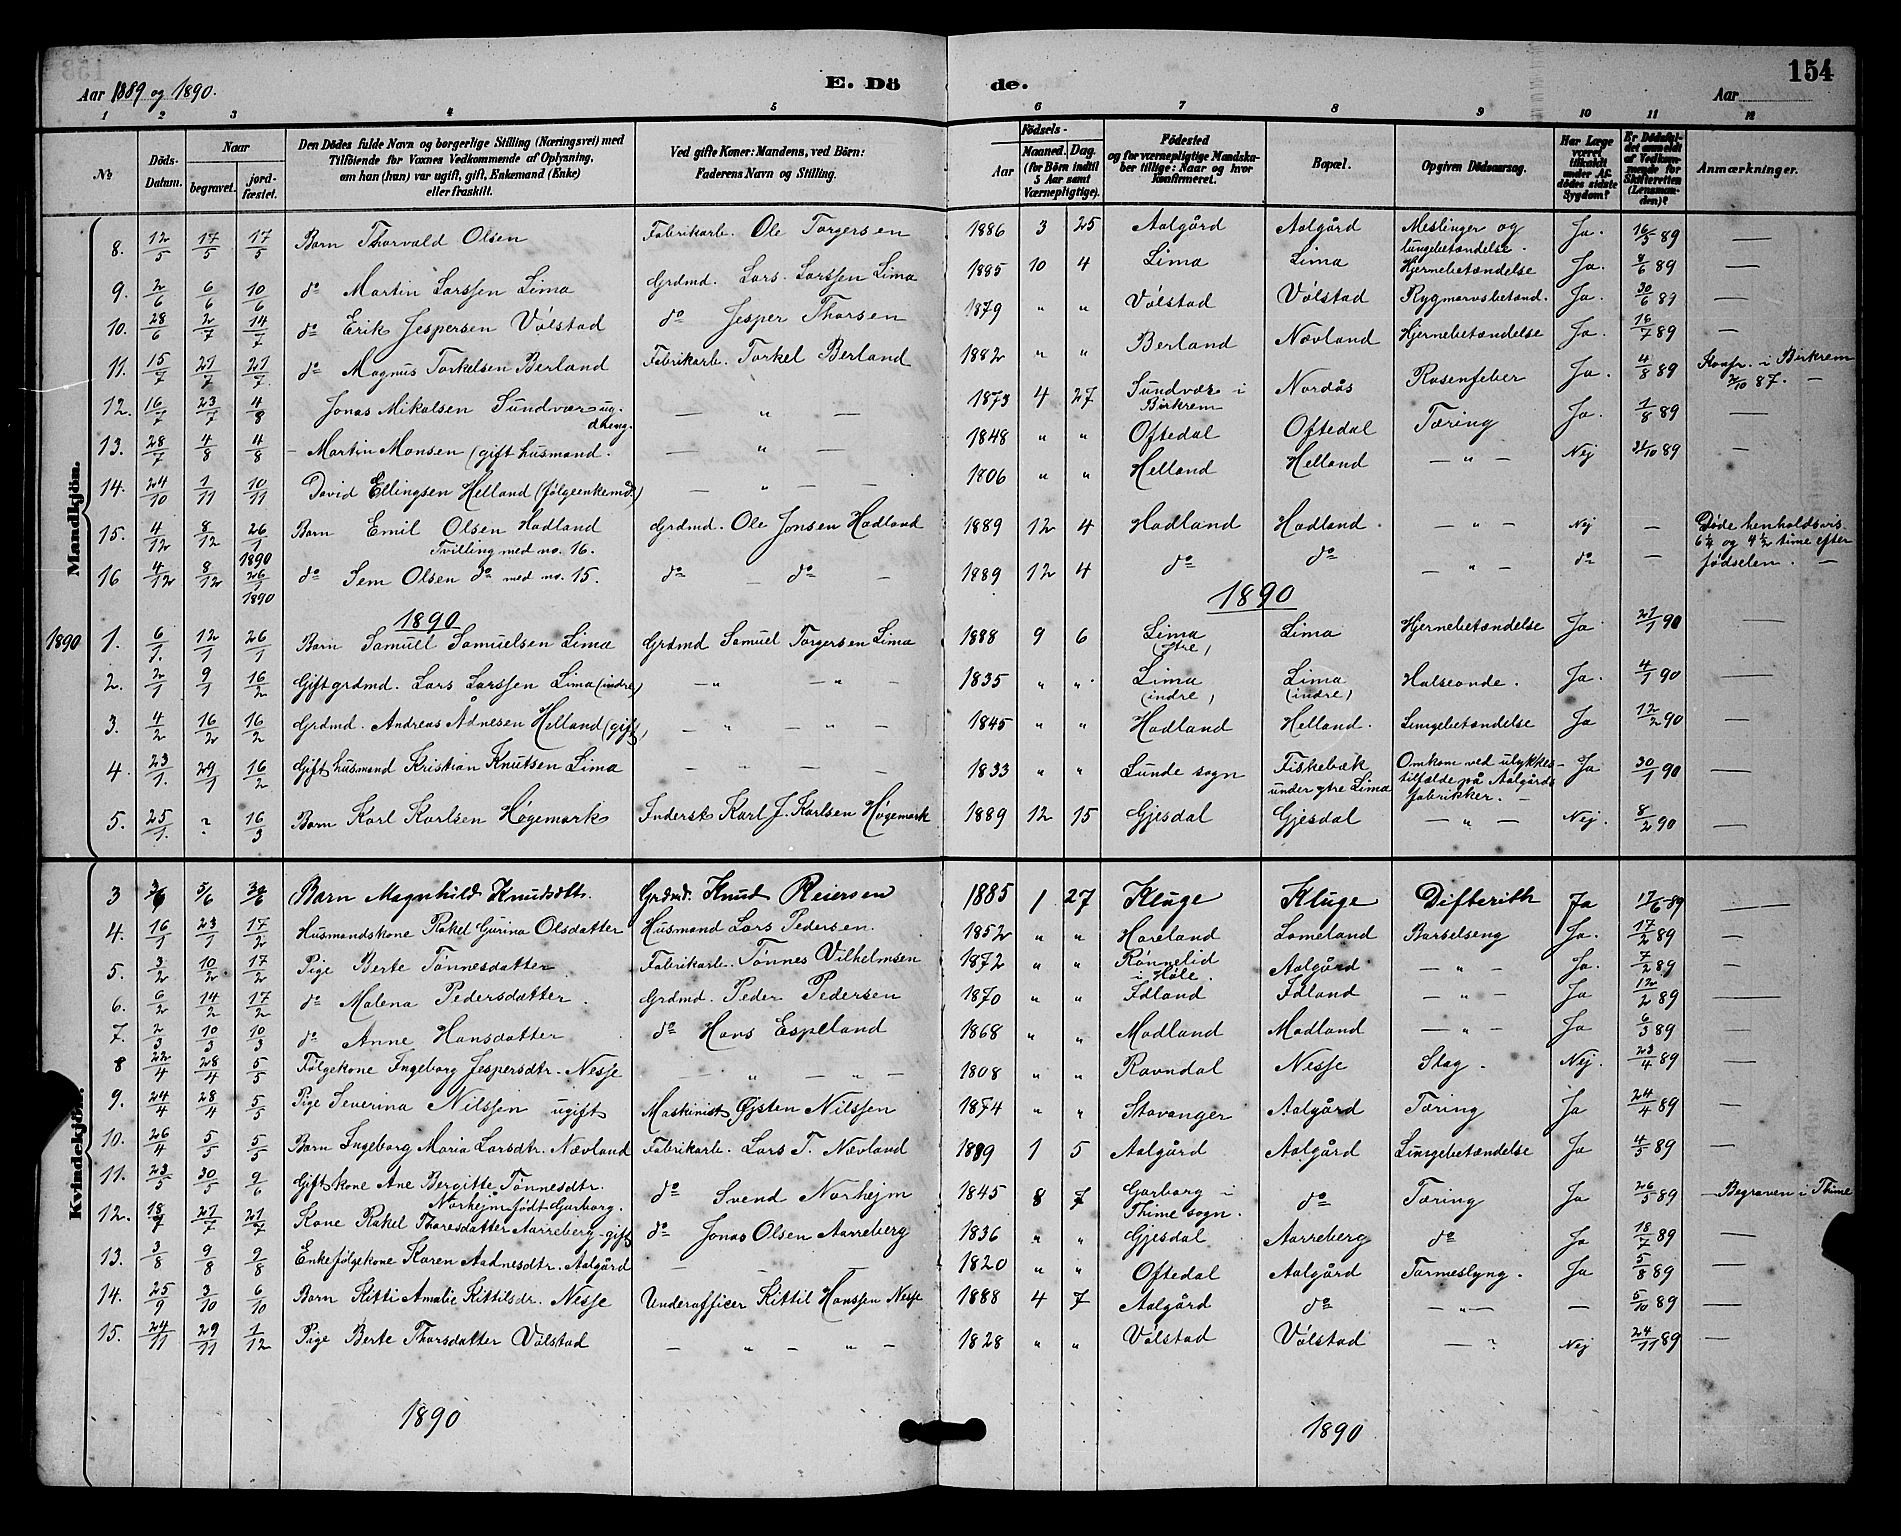 Aar 1889 og 1890.
E. Döde.
154
Aar
1 2 3 4 5 6 7 8 9 10 11 12
No
Döds-Datum.
Naar
begravet.
jord-fæstet.
Den Dödes fulde Navn og borgerlige Stilling (Næringsvei) med
Tilföiende for Voxnes Vedkommende af Oplysning,
om han (hun) var ugift, gift, Enkemand (Enke)
eller fraskilt.
Ved gifte Koner: Mandens, ved Börn:
Faderens Navn og Stilling.
Födsels-
Aar
Maaned. Dag.
(for Börn indtil
5 Aar samt
Værnepligtige).
Födested
og for værnepligtige Mandska-
ber tillige: Naar og hvor
Konfirmeret.
Bopæl.
Opgiven Dödsaarsag.
Har Læge
været
tilkaldt
under Af-
dödes sidste
Sygdom?
Er Dödsfal-
det anmeldt
af Vedkom-
mende for
Skifteretten
(Lensman-
den)?
Anmærkninger.
Mandkjön.
8. 12/5 17/5 17/5 Barn Thorvald Olsen Fabrikarb. Ole Torgersen 1886 3 25 Aalgård Aalgård Meslinger og lungebetændelse. Ja. 16/5 89 —
9. 2/6 6/6 10/6 do Martin Larssen Lima Grdmd. Lars Larssen Lima 1885 10 4 Lima Lima Hjernebetændelse Ja. 8/6 89 —
10. 28/6 2/7 14/7 do Erik Jespersen Vølstad do Jesper Thorsen 1879 " " Vølstad Vølstad Rygmarvsbetænd. Ja. 30/6 89 —
11. 15/7 21/7 21/7 do Magnus Torkelsen Berland Fabrikarb. Torkel Berland 1882 " " Berland Nævland Hjernebetændelse Ja. 16/7 89 —
12. 16/7 23/7 4/8 Jonas Mikalsen Sundvær ug. dreng. — " — 1873 4 27 Sundvær i Birkrem Nordås Rosenfeber Ja. 4/8 89 Konfr. i Birkrem 2/10 87. —
13. 28/7 4/8 4/8 – Martin Monsen (gift husmand. — " — 1848 " " Oftedal Oftedal Tæring Ja. 1/8 89 —
14. 24/10 1/11 10/11 David Ellingsen Helland (følgeenkemd.) — " — — 1806 " " Helland Helland — " — Nej 31/10 89 —
15. 4/12 8/12 26/1 1890 Barn Emil Olsen Hadland Tvilling med no. 16. Grdmd. Ole Jonsen Hadland 1889 12 4 Hadland Hadland. — " — Nej — Døde henholdsvis 6 1/4 og 4 1/2 time efter fødselen. —
16 4/12 8/12 26/1 1890 do Sem Olsen do med no. 15. do — do — 1889 12 4 do do — " — do —
1890 1890
1890 1. 6/1. 12/1 26/1 Barn Samuel Samuelsen Lima Grdmd Samuel Torgersen Lima 1888 9 6 Lima (ytre) Lima Hjernebetændelse Ja 21/1 90 —
2. 2/1 9/1 16/2 Gift grdmd. Lars Larssen Lima (indre) —" —"— 1835 " " Lima (indre) Lima (indre) Halseonde. Ja. 4/1 90 —
3. 4/2 16/2 16/2 Grdmd. Andreas Adnesen Helland (gift) — " — " — 1845 " " Hadland Helland. Lungebetændelse Ja 12/2 90 —
4. 23/1. 29/1 16/2 Gift husmand Kristian Knutsen Lima — " — — 1833 " " Lunde sogn Fiskebæk under ytre Lima Omkom ved ulykkes-tilfælde på Aalgårds fabrikker. — Ja 30/1 90 —
5. 25/1. ? 16/3 Barn Karl Karlsen Høgemark Inderst Karl J. Karlsen Høgemark 1889 12 15 Gjesdal Gjesdal — " — Nej. 8/2 90 —
Kvindekjön.
3 3/6 5/6 30/6 Barn Magnhild Knudsdtr. Grdmd. Knud Reiersen 1885 1 27 Kluge Kluge Difterith Ja 17/6-89 —
4. 16/1 23/1 17/2 Husmandskone Rakel Gurina Olsdatter Husmand Lars Pedersen. 1852 " " Hareland Lomeland Barselseng Ja. 17/2 89 —
5. 3/2 10/2 17/2 Pige Berte Tønnesdatter Fabrikarb. Tønnes Vilhelmsen 1872 " " Rønnelid i Høle. Aalgård — " — Ja. 7/2 89 —
6. 6/2 14/2 17/2 do Malena Pedersdatter. Grdmd. Peder Pedersen 1870 " " Idland Idland — " — Ja 12/2 89 —
7. 2/3 10/3 10/3 do Anne Hansdatter do Hans Espeland 1868 " " Madland Madland — " — Ja 6/3 89 —
8 22/4 28/4 5/5 Følgekone Ingeborg Jespersdtr. Nesse — " — " — 1808 " " Ravndal Nesse Slag. Nej. 23/4 89 —
9. 24/4 28/4 5/5 Pige Severina Nilssen ugift Maskinist Øjsten Nilssen 1874 " " Stavanger Aalgård Tæring Ja 24/4 89 —
10. 26/4 5/5 5/5 Barn Ingeborg Maria Larsdtr. Nævland Fabrikarb. Lars T. Nævland 1889 1 5 Aalgård Aalgård Lungebetændelse Ja 4/5 89 —
11. 23/5 30/5 9/6 Gift kone Ane Bergitte Tønnesdtr. Norhejm født Garborg. do Svend Norhejm 1845 8 7 Garborg i Thime sogn. do Tæring Ja 26/5 89 — Begraven i Thime
12. 18/7 21/7 21/7 Kone Rakel Thoresdatter Aarreberg - gift do Jonas Olsen Aarreberg 1836 " " Gjesdal Aarreberg do Ja 18/7 89 —
13. 3/8 9/8 9/8 Enkefølgekone Karen Aadnesdtr. Aalgård — — 1820 " " Oftedal Aalgård Tarmeslyng. Ja 5/8 89 —
14. 25/9 3/10 6/10 Barn Kitti Amalie Kittilsdr. Nesse Underofficer Kittil Hanssen Nesse 1888 4 7 Aalgård do — " — — 5/10 89 —
15. 24/11 29/11 1/12 Pige Berte Thorsdatter Vølstad — " — " — 1828 " " Vølstad Vølstad — ? Nej 24/11 89 —
1890 1890